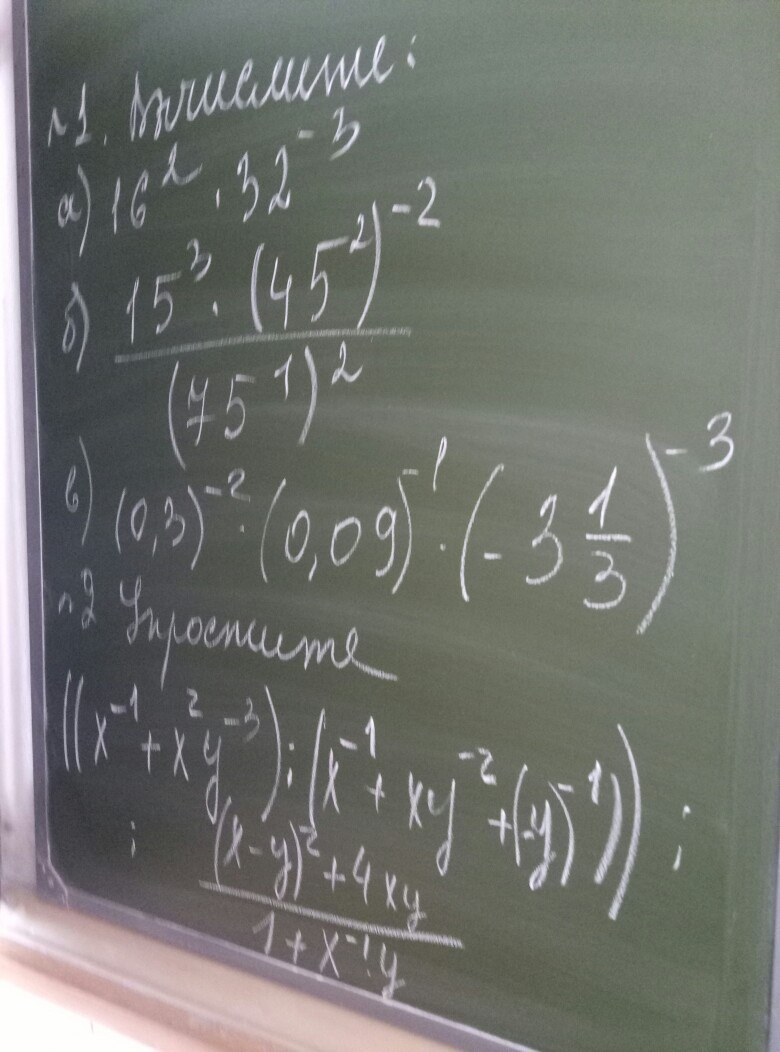 №1. Вычислите:
а) 16² · 32⁻³
б) 15³ · (45²)⁻²
(75¹)²
в) (0,3)⁻² · (0,09)⁻¹ · (-3 1/3)⁻³
№2 Упростите
((x⁻¹ + x²y⁻³) : (x⁻¹ + xy⁻² + (-y)⁻¹)) :
: (x-y)² + 4xy
1 + x⁻¹y